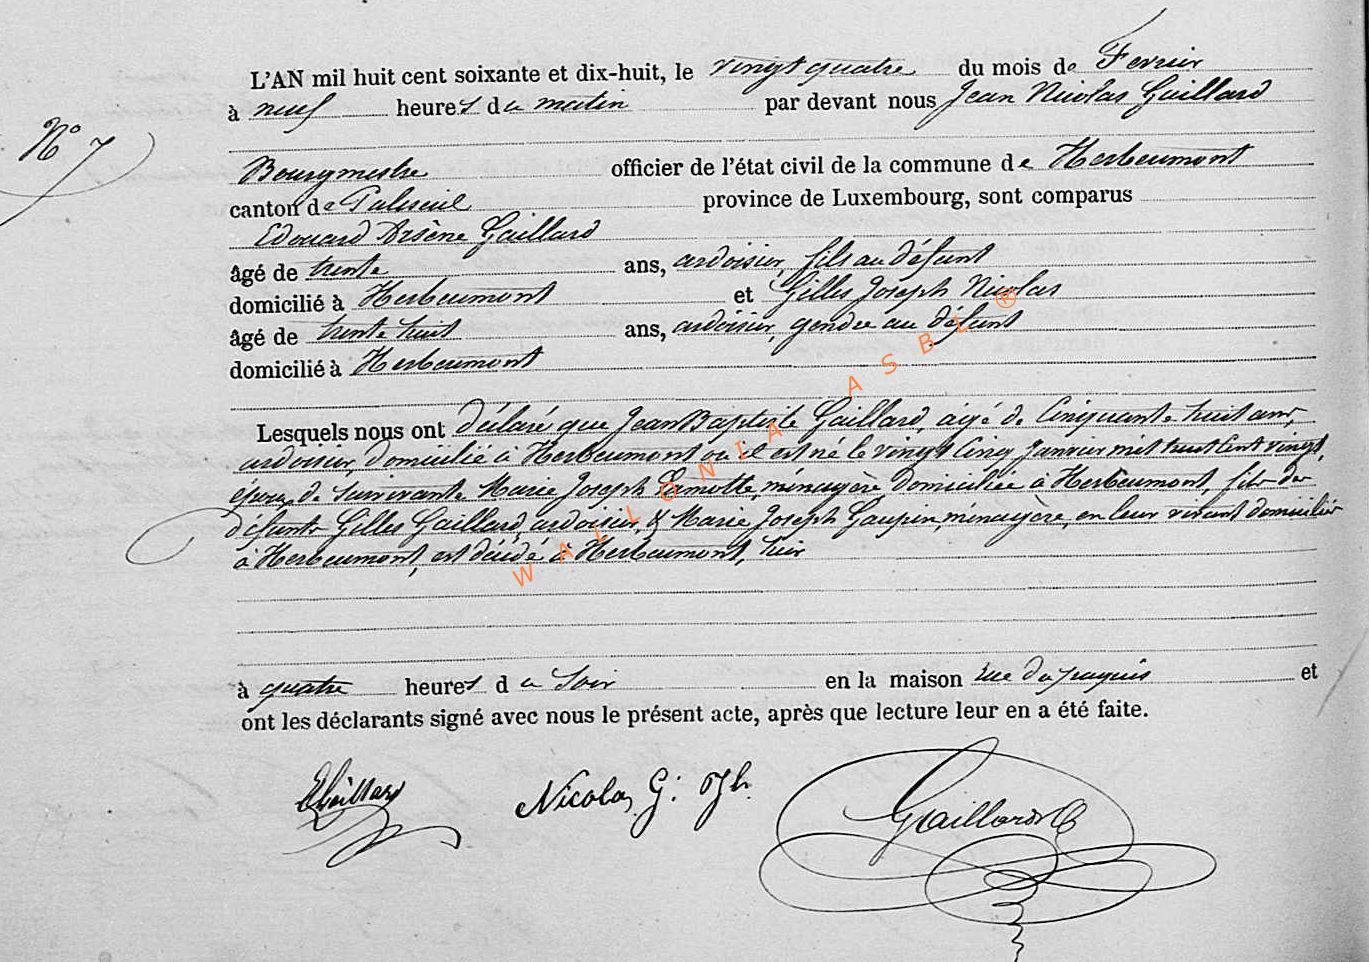 L'AN mil huit cent soixante et dix-huit, le vingt quatre du mois de Fevrier
N° 7
à neuf heures du matin par devant nous Jean Nicolas Gaillard
Bourgmestre officier de l'état civil de la commune de Herbeumont
canton de Paliseul province de Luxembourg, sont comparus
Edouard Arsène Gaillard
âgé de trente ans, ardoisier, fils au défunt
domicilié à Herbeumont et Gilles Joseph Nicolas
âgé de trente huit ans, ardoisier, gendre au défunt
domicilié à Herbeumont
Lesquels nous ont déclaré que Jean Baptiste Gaillard, âgé de Cinquante huit ans,
ardoisier, domicilié à Herbeumont où il est né le vingt Cinq Janvier mil huit Cent vingt,
époux de survivante Marie Joseph Lmotte, ménagère domiciliée à Herbeumont, fils des
défunts Gilles Gaillard, ardoisier, & Marie Joseph Gaupin, ménagère, en leur vivant domiciliés
à Herbeumont, est décédé à Herbeumont, hier
à quatre heures du Soir en la maison rue du et
ont les déclarants signé avec nous le présent acte, après que lecture leur en a été faite.
EGaillard Nicolas G: Jh. Gaillard
WALLONIA ASBL ®